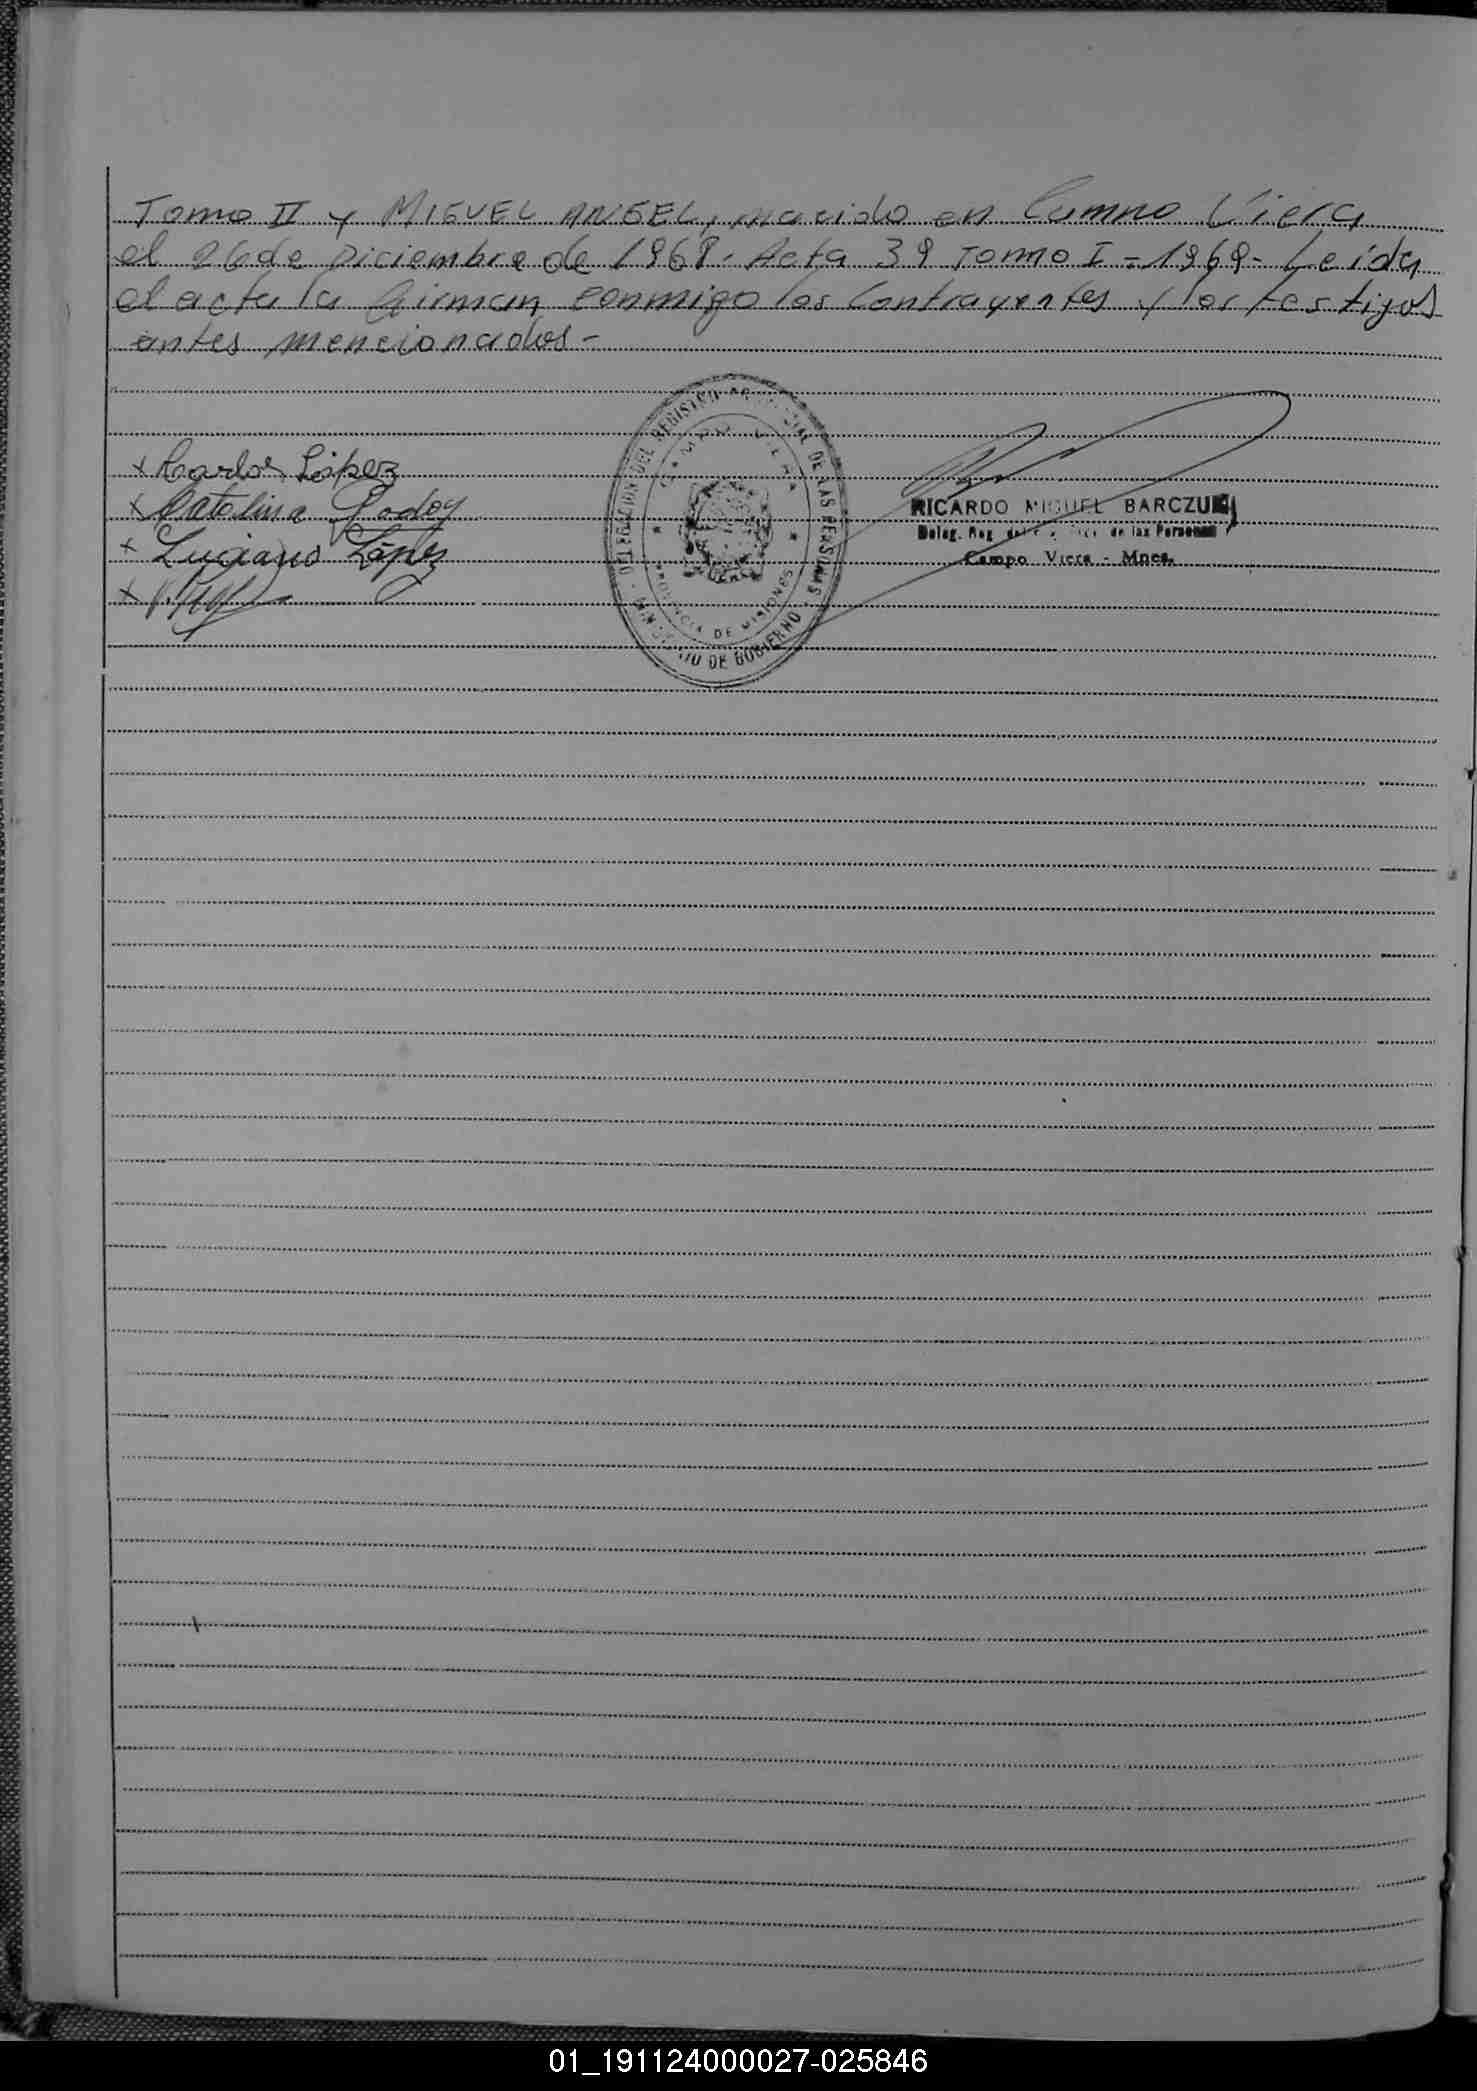 Tomo II y MIGUEL ANGEL, nacido en Campo Viera
el 26 de Diciembre de 1968. Acta 39 Tomo I = 1969 - Leida
el acta la firman conmigo los Contrayentes y los testigos
antes mencionados -
x Carlos López
x Catelina Godoy
x Luciano López
x
DELEGACION DEL REGISTRO PROVINCIAL DE LAS PERSONAS
CAMPO VIERA
PROVINCIA DE MISIONES
MINISTERIO DE GOBIERNO
RICARDO MIGUEL BARCZUK
Deleg. Reg. de las Personas
Campo Viera - Mnes.
01_191124000027-025846